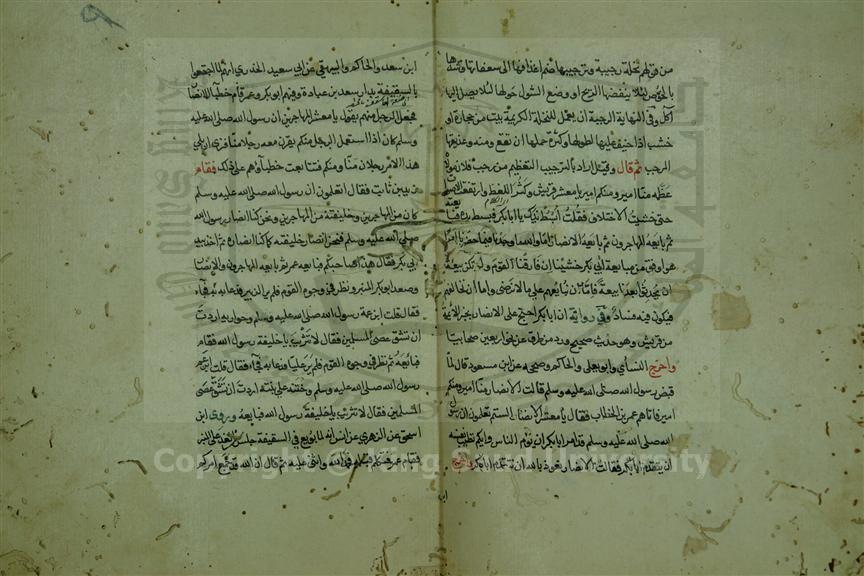 من قولهم نخلة رجبية وترجيبها ضم اعذاقها الى سعفاتها وشدها
بالخوص لئلا ينفضها الريح او وضع الشوك حولها لئلا يصل اليها
آكل وفي النهاية الرجبة ان يعمل للنخلة الكريمة بيت من حجارة او
خشب اذا خيف عليها لطولها وكثرة حملها ان تقع ومنه وعذيقها
المرجب ثم قال وقيل اراد بالترجيب التعظيم من رجب فلان مولاه
عظمه منا امير ومنكم امير يا معشر قريش وكثر اللغط وارتفعت الاصوات
حتى خشيت الاختلاف فقلت ابسط يدك يا ابا بكر فبسط يده فبايعته
ثم بايعه المهاجرون ثم بايعه الانصار اما والله ما وجدنا فيما حضرنا امرا
هو اوفق من مبايعة ابي بكر خشينا ان فارقنا القوم ولم تكن بيعة
ان يحدثوا بعدنا بيعة فاما ان نبايعهم على ما لا نرضى واما ان نخالفهم
فيكون فيه فساد وفي رواية ان ابا بكر احتج على الانصار بخبر الائمة
من قريش وهو حديث صحيح ورد من طرق عن نحو اربعين صحابيا
واخرج النسائي وابو يعلى والحاكم وصححه عن ابن مسعود قال لما
قبض رسول الله صلى الله عليه وسلم قالت الانصار منا امير ومنكم
امير فاتاهم عمر بن الخطاب فقال يا معشر الانصار الستم تعلمون ان رسول
الله صلى الله عليه وسلم قد امر ابا بكر ان يؤم الناس وايكم تطيب نفسه
ان يتقدم ابا بكر فقالت الانصار نعوذ بالله ان نتقدم ابا بكر واخرج
ابن سعد والحاكم والبيهقي عن ابي سعيد الخدري انهم لما اجتمعوا
بالسقيفة بدار سعد بن عبادة وفيهم ابو بكر وعمر قام خطباء الانصار
فجعل الرجل منهم يقول يا معشر المهاجرين ان رسول الله صلى الله عليه
وسلم كان اذا استعمل الرجل منكم يقرن معه رجلا منا فنرى ان يلي
هذا الامر رجلان منا ومنكم فتتابعت خطباؤهم على ذلك فقام
زيد بن ثابت فقال اتعلمون ان رسول الله صلى الله عليه وسلم
كان من المهاجرين وخليفته من المهاجرين ونحن كنا انصار رسول الله
صلى الله عليه وسلم فنحن انصار خليفته كما كنا انصاره ثم اخذ بيد
ابي بكر فقال هذا صاحبكم فبايعه عمر ثم بايعه المهاجرون والانصار
وصعد ابو بكر المنبر ونظر في وجوه القوم فلم ير الزبير فدعا به فجاء
فقال قلت ابن عمة رسول الله صلى الله عليه وسلم وحواريه اردت
ان تشق عصى المسلمين فقال لا تثريب يا خليفة رسول الله فقام
فبايعه ثم نظر في وجوه القوم فلم ير عليا فدعا به فجاء فقال قلت ابن عم
رسول الله صلى الله عليه وسلم وختنه على بنته اردت ان تشق عصى
المسلمين فقال لا تثريب يا خليفة رسول الله فبايعه وروى ابن
اسحق عن الزهري عن انس انه لما بويع في السقيفة جلس الغد على المنبر
فقام عمر فتكلم قبله فحمد الله واثنى عليه ثم قال ان الله قد جمع امركم
Copyright © King Saud University